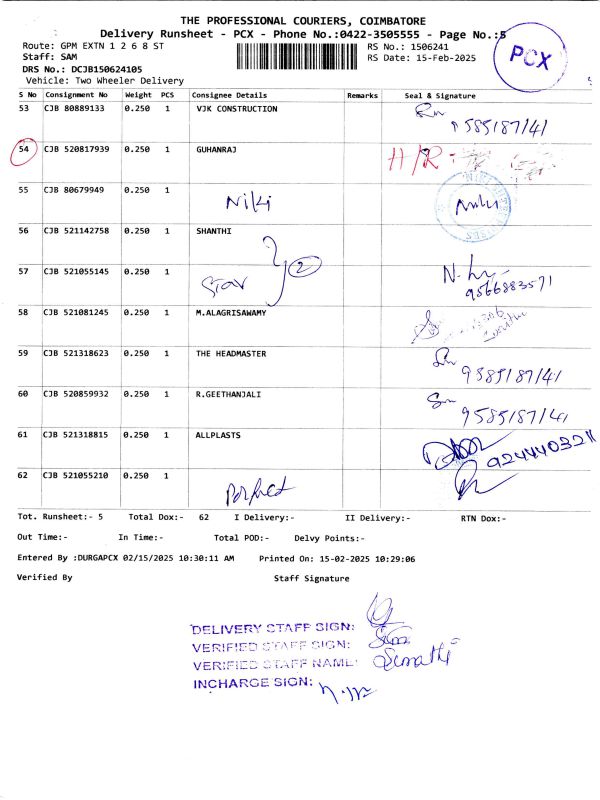 THE PROFESSIONAL COURIERS, COIMBATORE
Delivery Runsheet - PCX - Phone No.:0422-3505555 - Page No.:5
Route: GPM EXTN 1 2 6 8 ST RS No.: 1506241
Staff: SAM RS Date: 15-Feb-2025
PCX
DRS No.: DCJB150624105
Vehicle: Two Wheeler Delivery
S No Consignment No Weight PCS Consignee Details Remarks Seal & Signature
53 CJB 80889133 0.250 1 VJK CONSTRUCTION
9585187141
54 CJB 520817939 0.250 1 GUHANRAJ H/R
55 CJB 80679949 0.250 1
Niki
56 CJB 521142758 0.250 1 SHANTHI
57 CJB 521055145 0.250 1
Star 2 9566883571
58 CJB 521081245 0.250 1 M.ALAGRISAWAMY
59 CJB 521318623 0.250 1 THE HEADMASTER
9585187141
60 CJB 520859932 0.250 1 R.GEETHANJALI
9585187141
61 CJB 521318815 0.250 1 ALLPLASTS
62 CJB 521055210 0.250 1
Perfect
Tot. Runsheet:- 5 Total Dox:- 62 I Delivery:- II Delivery:- RTN Dox:-
Out Time:- In Time:- Total POD:- Delvy Points:-
Entered By :DURGAPCX 02/15/2025 10:30:11 AM Printed On: 15-02-2025 10:29:06
Verified By Staff Signature
DELIVERY STAFF SIGN:
VERIFIED STAFF SIGN:
VERIFIED STAFF NAME: Sumathi
INCHARGE SIGN: